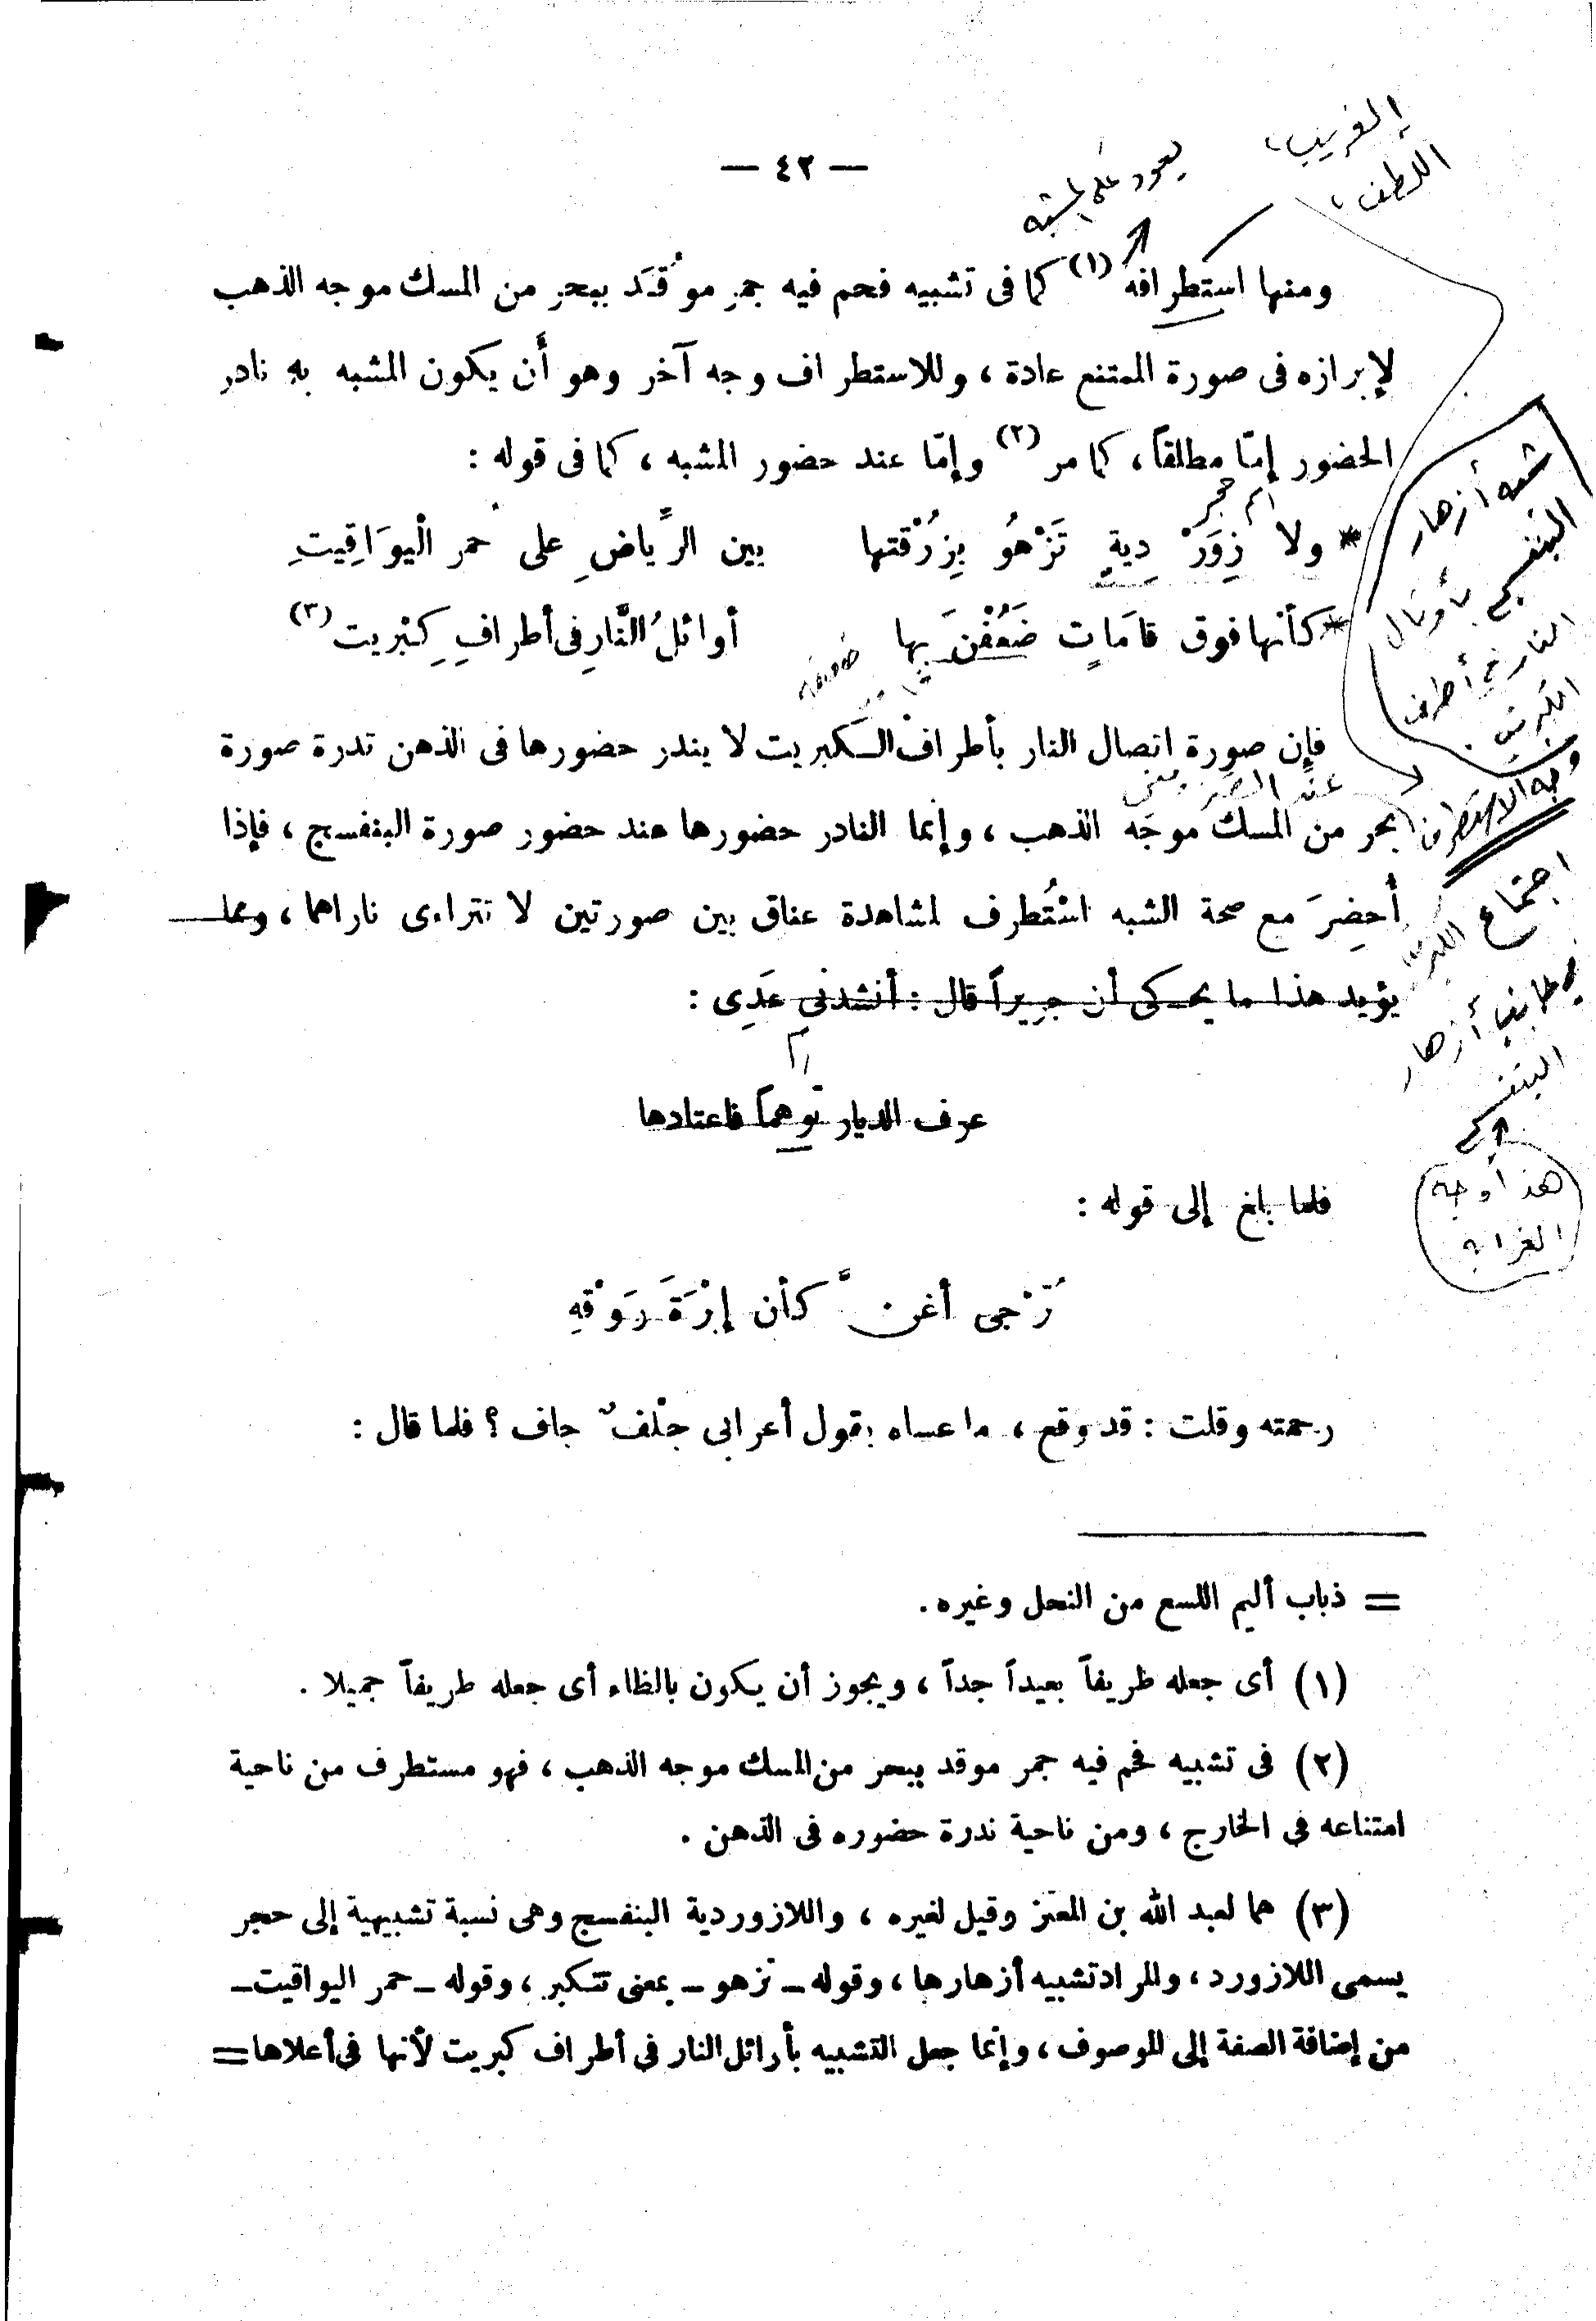 — ٤٢ —
الغريب،
اللطف،
يعود على المشبه
ومنها استطرافه (١) كما فى تشبيه فحم فيه جمر مُوقَد ببحر من المسك موجه الذهب
لإبرازه فى صورة الممتنع عادة، وللاستطراف وجه آخر وهو أن يكون المشبه به نادر
الحضور إمّا مطلقاً، كما مر (٢) وإمّا عند حضور المشبه، كما فى قوله:
حجر
ولا زِوَرْدِيةٍ تَزْهُو بِزُرْقتها بين الرِّياضِ على حمر الْيوَاقِيتِ
كأنها فوق قامَاتٍ ضَعُفْنَ بها أوائلُ النَّارِ فى أطرافِ كِبْريت (٣)
ضعيفة
فإن صورة اتصال النار بأطراف الكبريت لا يندر حضورها فى الذهن ندرة صورة
بحر من المسك موجه الذهب، وإنما النادر حضورها عند حضور صورة البنفسج، فإذا
أُحضِرَ مع صحة الشبه اسْتُطرف لمشاهدة عناق بين صورتين لا تتراءى ناراهما، ومما
يؤيد هذا ما يحكى أن جريراً قال: أنشدنى عَدِى:
عرف الديار توهماً فاعتادها
فلما بلغ إلى قوله:
تُزْجى أغنَّ كأن إبْرَةَ رَوْقهِ
رحمته وقلت: قد وقع، ما عساه يقول أعرابى جلْفٌ جاف؟ فلما قال:
شبه أزهار
البنفسج
بأوئال
النار فى أطراف
الكبريت
وجه الاستطراف
اجتماع
أزهار
البنفسج
هذا وجه
الغرابه
= ذباب أليم اللسع من النحل وغيره.
(١) أى جعله طريفاً بعيداً جداً، ويجوز أن يكون بالظاء أى جعله ظريفاً جميلا.
(٢) فى تشبيه فحم فيه جمر موقد ببحر من المسك موجه الذهب، فهو مستطرف من ناحية
امتناعه فى الخارج، ومن ناحية ندرة حضوره فى الذهن.
(٣) هما لعبد الله بن المعتز وقيل لغيره، واللازوردية البنفسج وهى نسبة تشبيهية إلى حجر
يسمى اللازورد، والمراد تشبيه أزهارها، وقوله ـ تزهو ـ بمعنى تتكبر، وقوله ـ حمر اليواقيت ـ
من إضافة الصفة إلى الموصوف، وإنما جعل التشبيه بأوائل النار فى أطراف كبريت لأنها فى أعلاها =